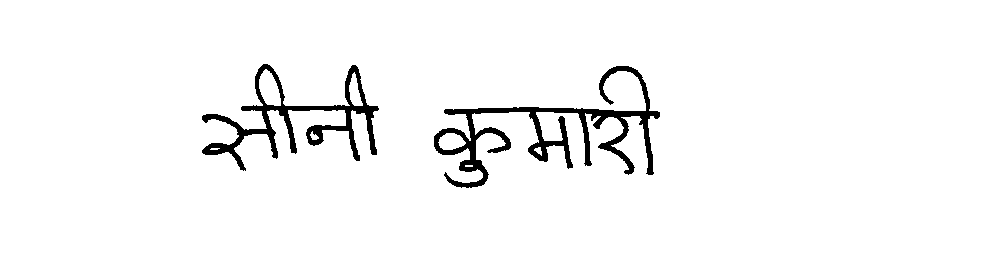 सीनी कुमारी